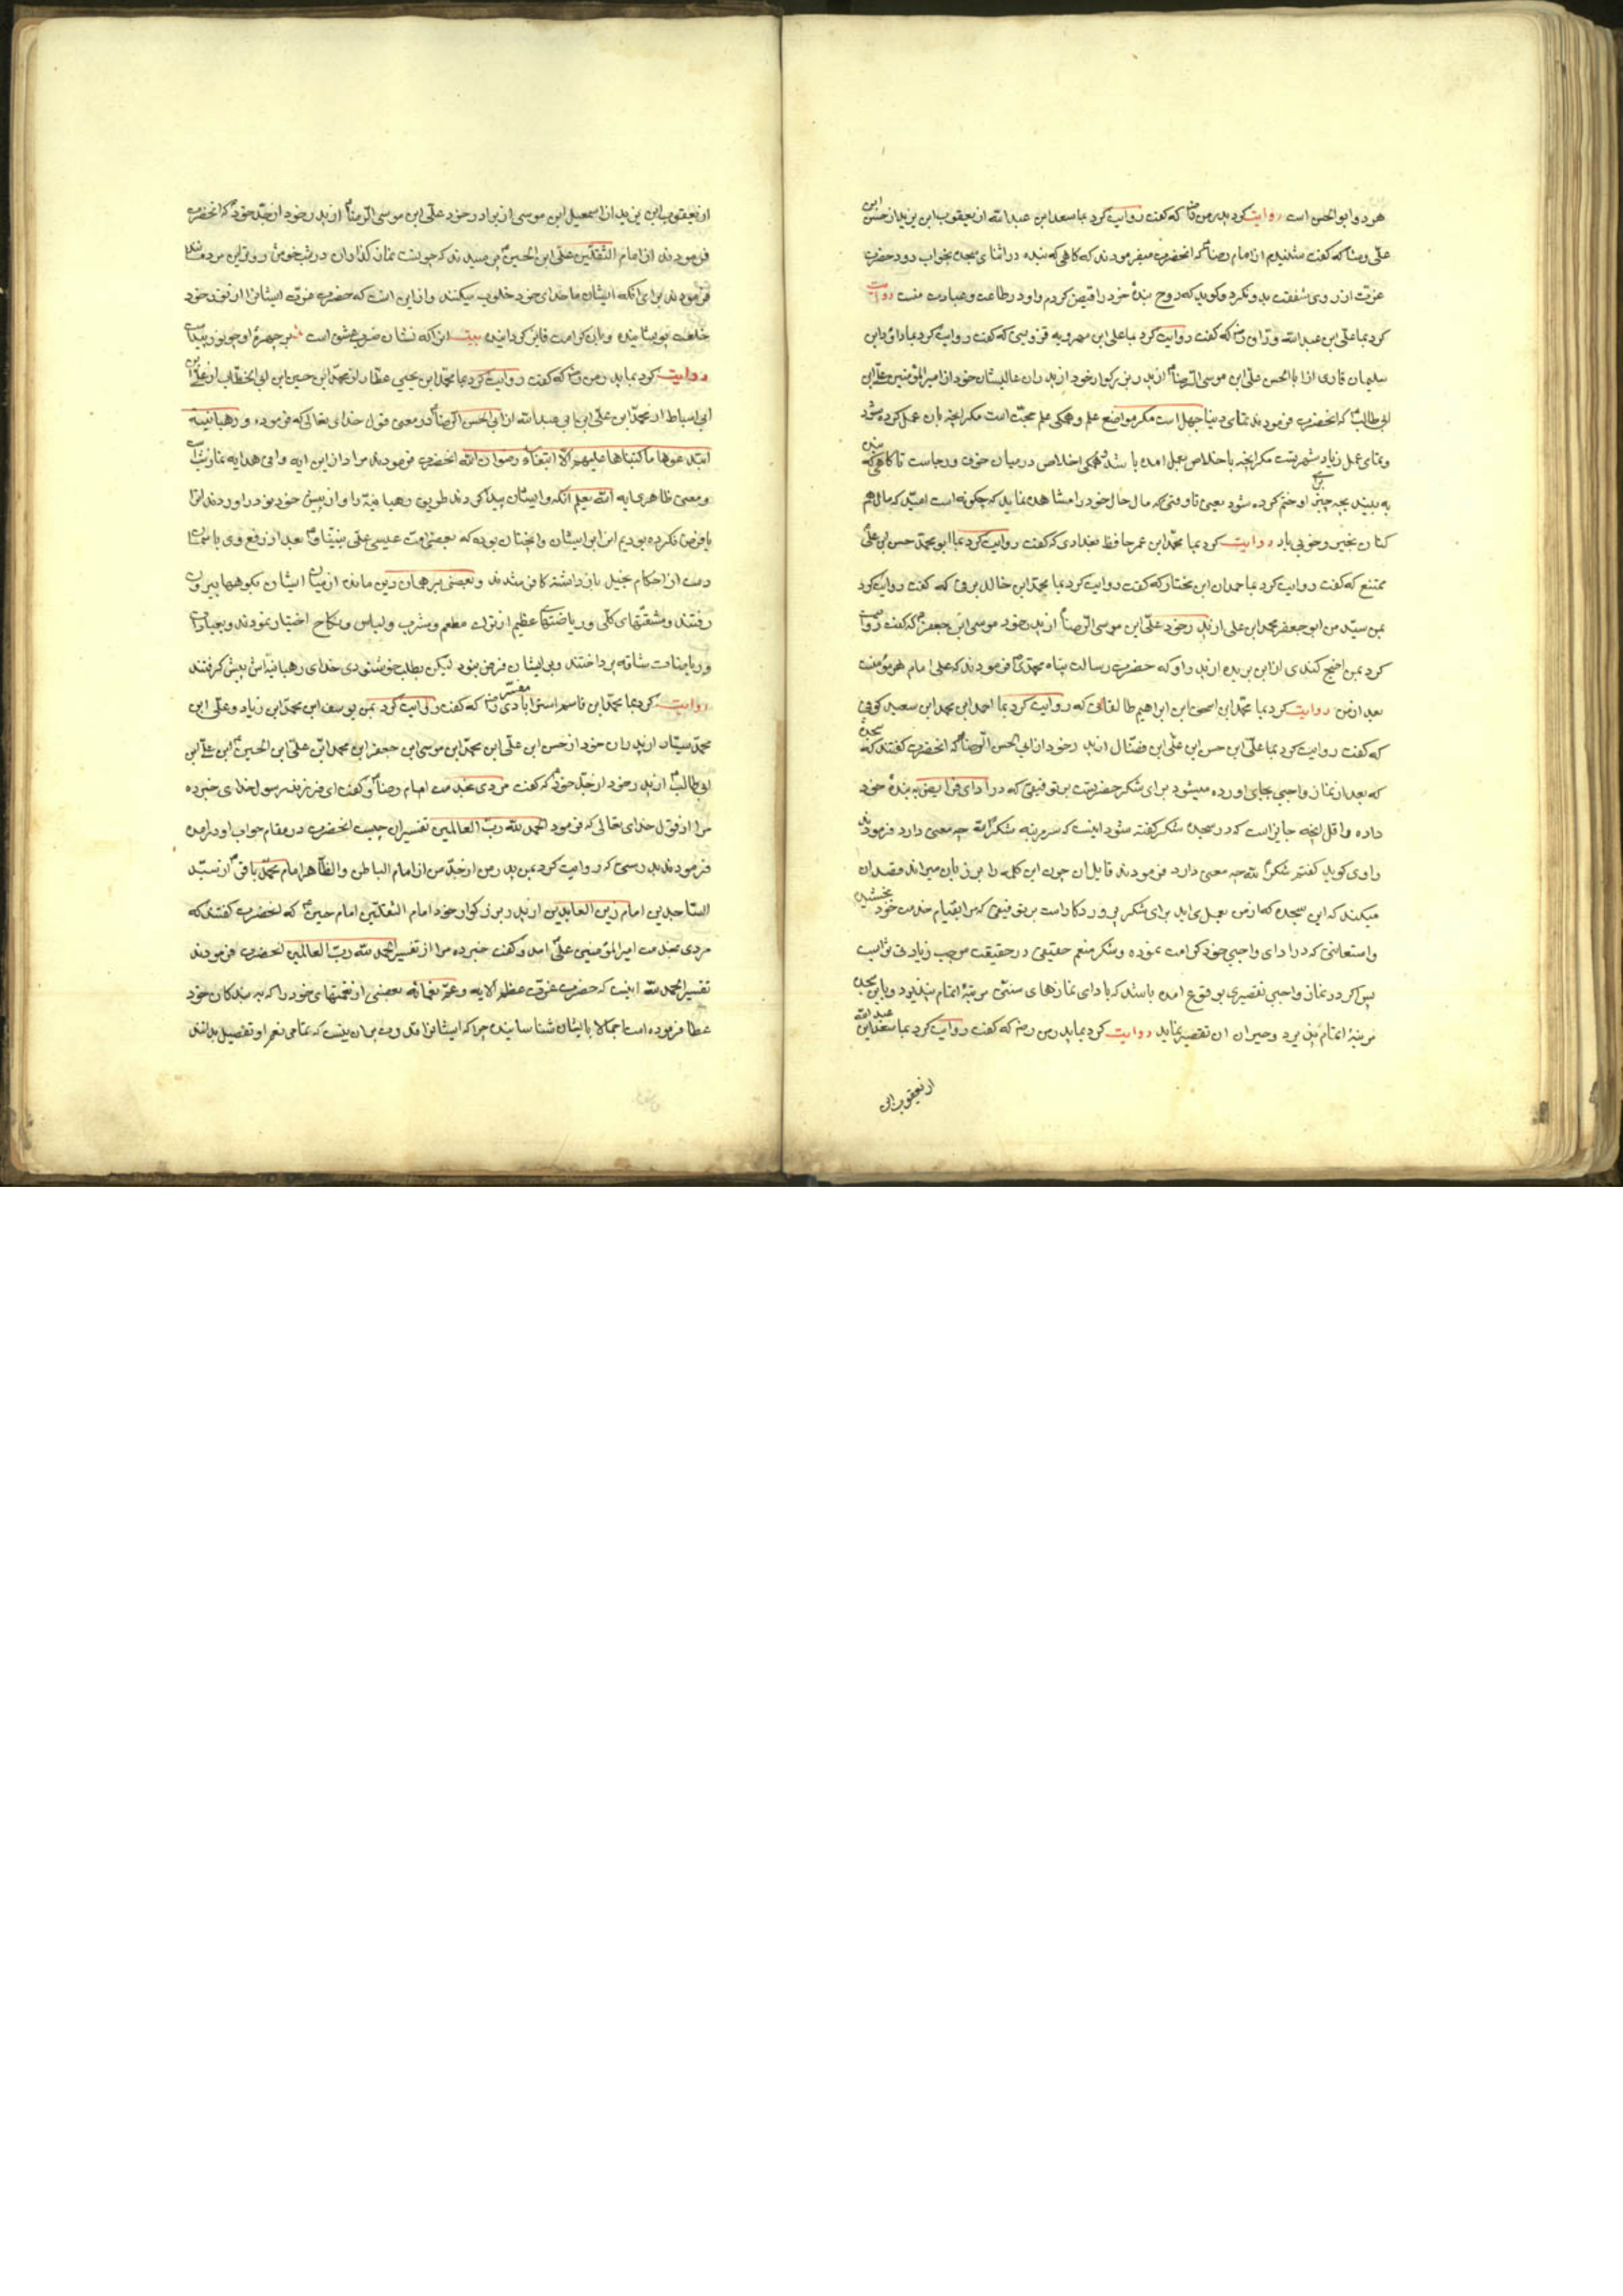 هر دو ابو الحسن است روایت کرد پدر من رض که گفت روایت کرد بما سعد ابن عبدالله از یعقوب ابن یزید از حسن ابن
علی وشا که گفت شنیدم از امام رضا ع که انحضرت میفرمودند که گاهی که بنده در اثنای سجده بخواب رود حضرت
عزت از روی شفقت بدو نگرد و گوید که روح بندهٔ خود را قبض کردم و او در طاعت و عبادت منست روایت
کرد بما علی ابن عبدالله وراق رض که گفت روایت کرد بما علی ابن مهرویه قزوینی که گفت روایت کرد بما داود ابن
سلیمان قاری از ابا الحسن علی ابن موسی الرضا ع از پدر بزرگوار خود از پدران عالیشان خود از امیر المؤمنین علی ابن
ابی طالب ع که انحضرت فرمودند تمامی دنیا جهل است مگر مواضع علم و همگی علم حجت است مگر انچه بان عمل کرده شود
و تمامی عمل زیاد شهرتست مگر انچه باخلاص بعمل امده باشد و همگی اخلاص در میان خوف و رجاست تا گاهی که بنده
به بیند بچه چیز او ختم کرده شود یعنی تا وقتی که مال حال خود را مشاهده نماید که چگونه است امید که مال هم
کنان بخیر و خوبی باد روایت کرد بما محمد ابن عمر حافظ بغدادی که گفت روایت کرد بما ابو محمد حسن ابن علی
ممتنع که گفت روایت کرد بما حمدان ابن مختار که گفت روایت کرد بما محمد ابن خالد برقی که گفت روایت کرد
بمن سید من ابو جعفر محمد ابن علی از پدر خود علی ابن موسی الرضا ع از پدر خود موسی ابن جعفر ع که گفت روایت
کرد بمن اجلح کندی از ابن بریده از پدر او که حضرت رسالت پناه محمدی ص فرمودند که علی امام هر مؤمنست
بعد از من روایت کرد بما محمد ابن اسحق ابن ابراهیم طالقانی که روایت کرد بما احمد ابن محمد ابن سعید کوفی
که گفت روایت کرد بما علی ابن حسن ابن علی ابن فضال از پدر خود از ابی الحسن الرضا ع که انحضرت گفتند که سجدهٔ
که بعد از نماز واجبی بجای اورده میشود برای شکر حضرتست بر توفیقی که در ادای فرایض به بندهٔ خود
داده و اقل انچه جایز است که در سجده شکر گفته شود اینست که سه مرتبه شکرا لله چه معنی دارد فرمودند
راوی گوید گفتم شکرا لله چه معنی دارد فرمودند قایل ان چون این کلمه را بر زبان میراند قصد ان
میکند که این سجده که از من بعمل می اید برای شکر پروردکار است بر توفیقی که مرا بقیام خدمت خود بخشیده
و استعانتی که در ادای واجبی خود کرامت نموده و شکر منعم حقیقی در حقیقت موجب زیادتی ثوابست
پس اگر در نماز واجبی تقصیری بوقوع امده باشد که بادای نمازهای سنتی مرتبهٔ اتمام نپذیرد و باین سجده
مرتبهٔ اتمام پذیرد و جبران ان تقصیر نماید روایت کرد بما پدر من رض که گفت روایت کرد بما سعد ابن عبدالله
از یعقوب ابن
از یعقوب ابن یزید از اسمعیل ابن موسی از برادر خود علی ابن موسی الرضا ع از پدر خود از جد خود ع که انحضرت
فرمودند از امام الثقلین علی ابن الحسین ع پرسیدند که چونست نماز گذاران در شب خوش روترین مردمانند
فرمودند برای انکه ایشان با خدای خود خلوت میکنند و از این است که حضرت عزت ایشانرا از نور خود
خلعت پوشانیده و باین کرامت فایز گردانیده بیت انرا که نشان ضرب عشق است بر چهرهٔ او چو نور پیداست
روایت کرد بما پدر من رض که گفت روایت کرد بما محمد ابن یحیی عطار از محمد ابن حسین ابن ابی الخطاب از علی ابن
ابی اسباط از محمد ابن علی ابن ابی عبدالله از ابی الحسن الرضا ع در معنی قول خدای تعالی که فرموده و رهبانیة
ابتدعوها ما کتبناها علیهم الا ابتغاء رضوان الله انحضرت فرمودند مراد از این ایه وافی هدایه نماز شبست
و معنی ظاهری ایه الله یعلم انکه و ایشان پیدا کردند طریق رهبانیة را و از پیش خود بوردر اوردند انرا
یا فرض نکرده بودیم انرا بر ایشان و انچنان بوده که بعضی امت عیسی علی نبینا و ع بعد از رفع وی باسمان
دست از احکام انجیل باز داشته کافر شدند و بعضی بر همان دین مانده از میان ایشان بکوهها بیرون
رفتند و مشقتهای کلی و ریاضتهای عظیم از ترک مطعم و مشرب و لباس و نکاح اختیار نمودند و بعبادت
و ریاضات شاقه پرداختند و بر ایشان فرض نبود لیکن بطلب خوشنودی خدای رهبانیة پیش گرفتند
روایت کرد بما محمد ابن قاسم مفسر استرابادی رض که گفت روایت کرد بمن یوسف ابن محمد ابن زیاد و علی ابن
محمد سیار از پدران خود از حسن ابن علی ابن محمد ابن موسی ابن جعفر ابن محمد ابن علی ابن الحسین ع ابن علی ابن
ابی طالب ع از پدر خود از جد خود ع که گفت مردی بخدمت امام رضا ع و گفت ای فرزند رسول خدا خبر ده
مرا از قول خدای تعالی که فرمود الحمد لله رب العالمین تفسیر ان چیست انحضرت در مقام جواب او درامده
فرمودند بدرستی که روایت کرد بمن پدر من از جد من از امام الباطن و الظاهر امام محمد باقر ع از سید
الساجدین امام زین العابدین از پدر بزرگوار خود امام الثقلین امام حسین ع که انحضرت گفتند که
مردی بخدمت امیر المؤمنین علی امد و گفت خبر ده مرا از تفسیر الحمد لله رب العالمین انحضرت فرمودند
تفسیر الحمد لله اینست که حضرت عزت عظم الایه و عم نعمائه بعضی از نعمتهای خود را که به بندکان خود
عطا فرموده است اجمالا بایشان شناسانیده چرا که ایشانرا قدرت بران نیست که تمامی نعم او بتفصیل بدانند